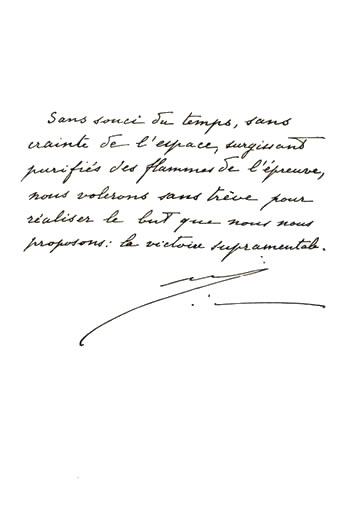 Sans souci du temps, sans
crainte de l'espace, surgissant
purifiés des flammes de l'épreuve,
nous volerons sans trêve pour
réaliser le but que nous nous
proposons: la victoire supramentale.